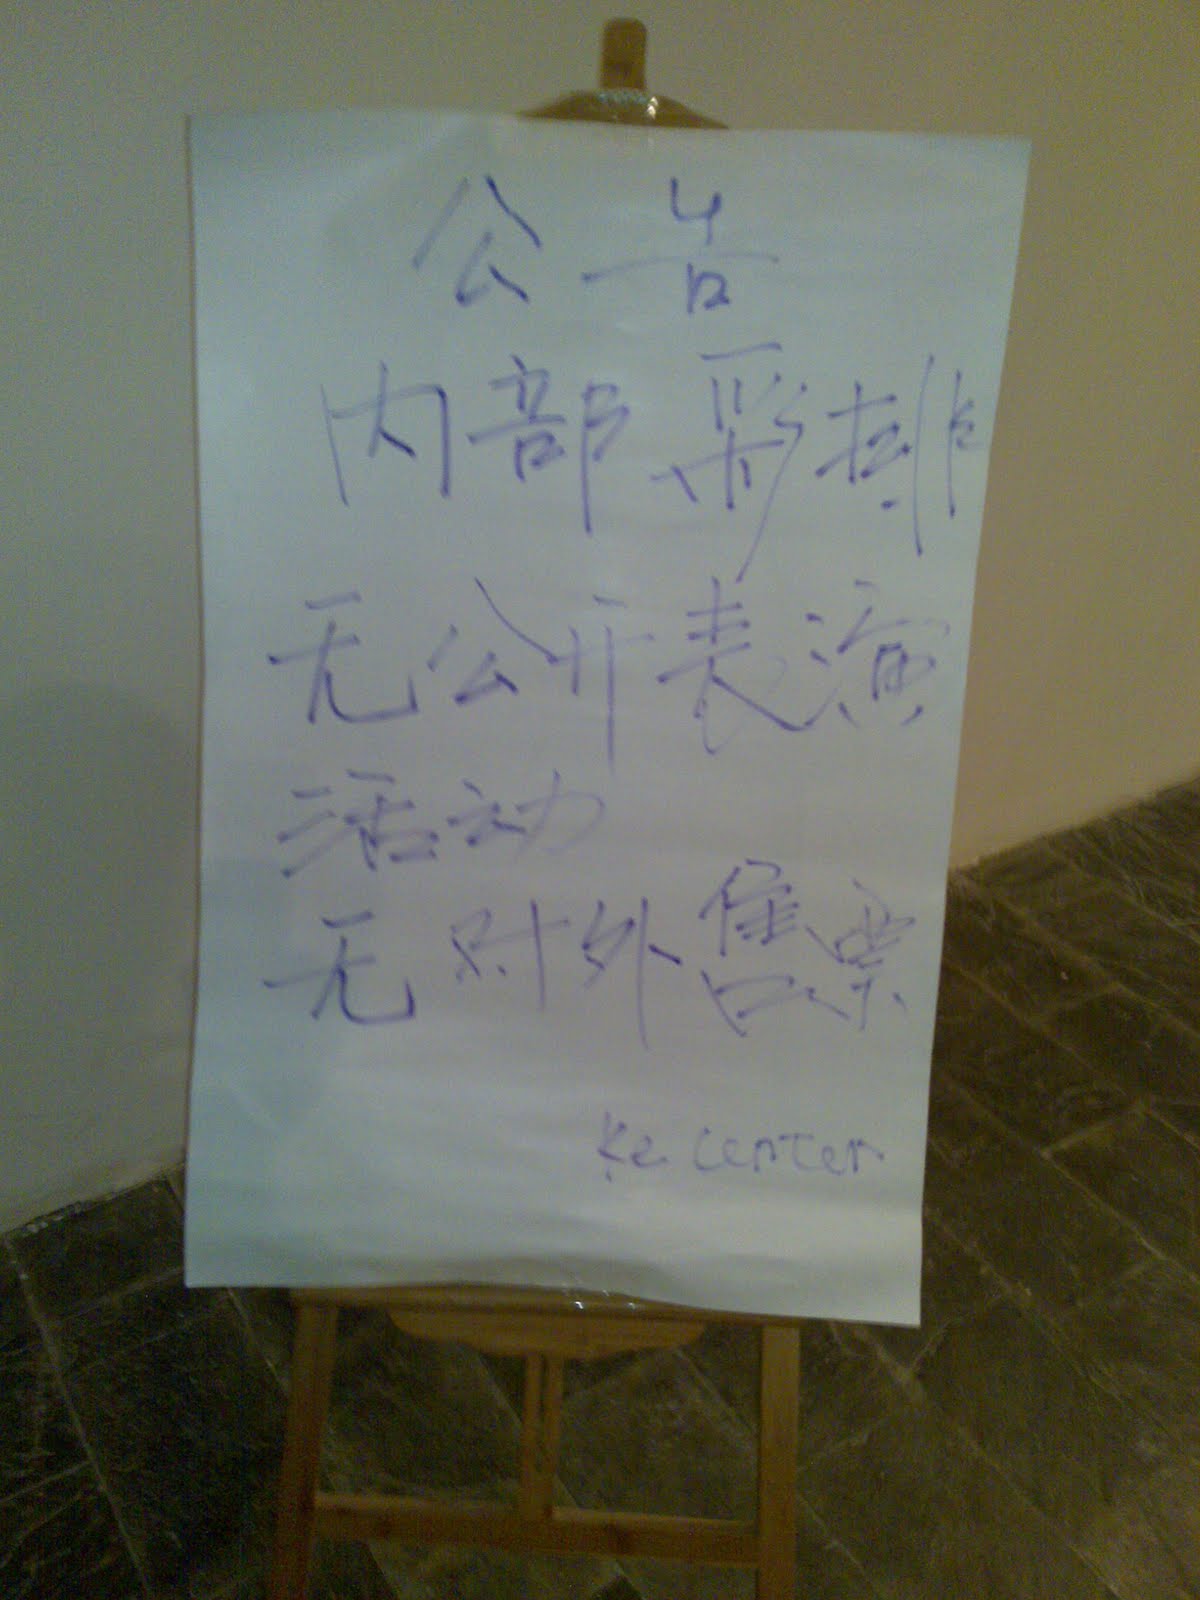 公告
内部彩排
无公开表演
活动
无对外售票
Ke Center